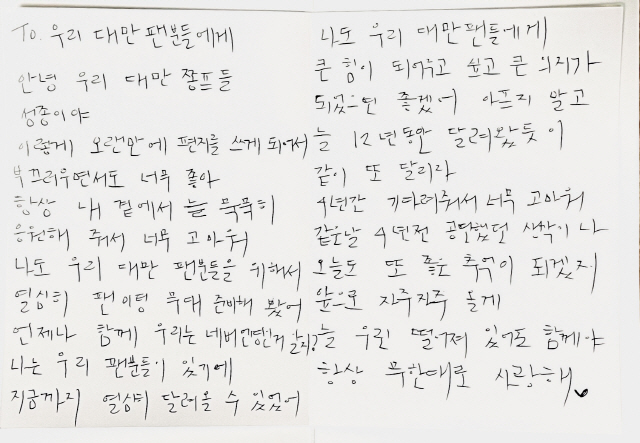 To. 우리 대만 팬분들에게
안녕 우리 대만 쫑프들
성종이야
이렇게 오랜만에 편지를 쓰게 되어서
부끄러우면서도 너무 좋아
항상 내 곁에서 늘 묵묵히
응원해 줘서 너무 고마워
나도 우리 대만 팬분들을 위해서
열심히 팬미팅 무대 준비해 봤어
언제나 함께 우리는 네버엔딩인거 알지?
나는 우리 팬분들이 있기에
지금까지 열심히 달려올 수 있었어
나도 우리 대만팬들에게
큰 힘이 되어주고 싶고 큰 의지가
되었으면 좋겠어 아프지 말고
늘 12년동안 달려왔듯이
같이 또 달리자
4년간 기다려줘서 너무 고마워
같은날 4년전 공연했던 생각이 나
오늘도 또 좋은 추억이 되겠지
앞으로 자주자주 올게
늘 우린 떨어져 있어도 함께야
항상 무한대로 사랑해